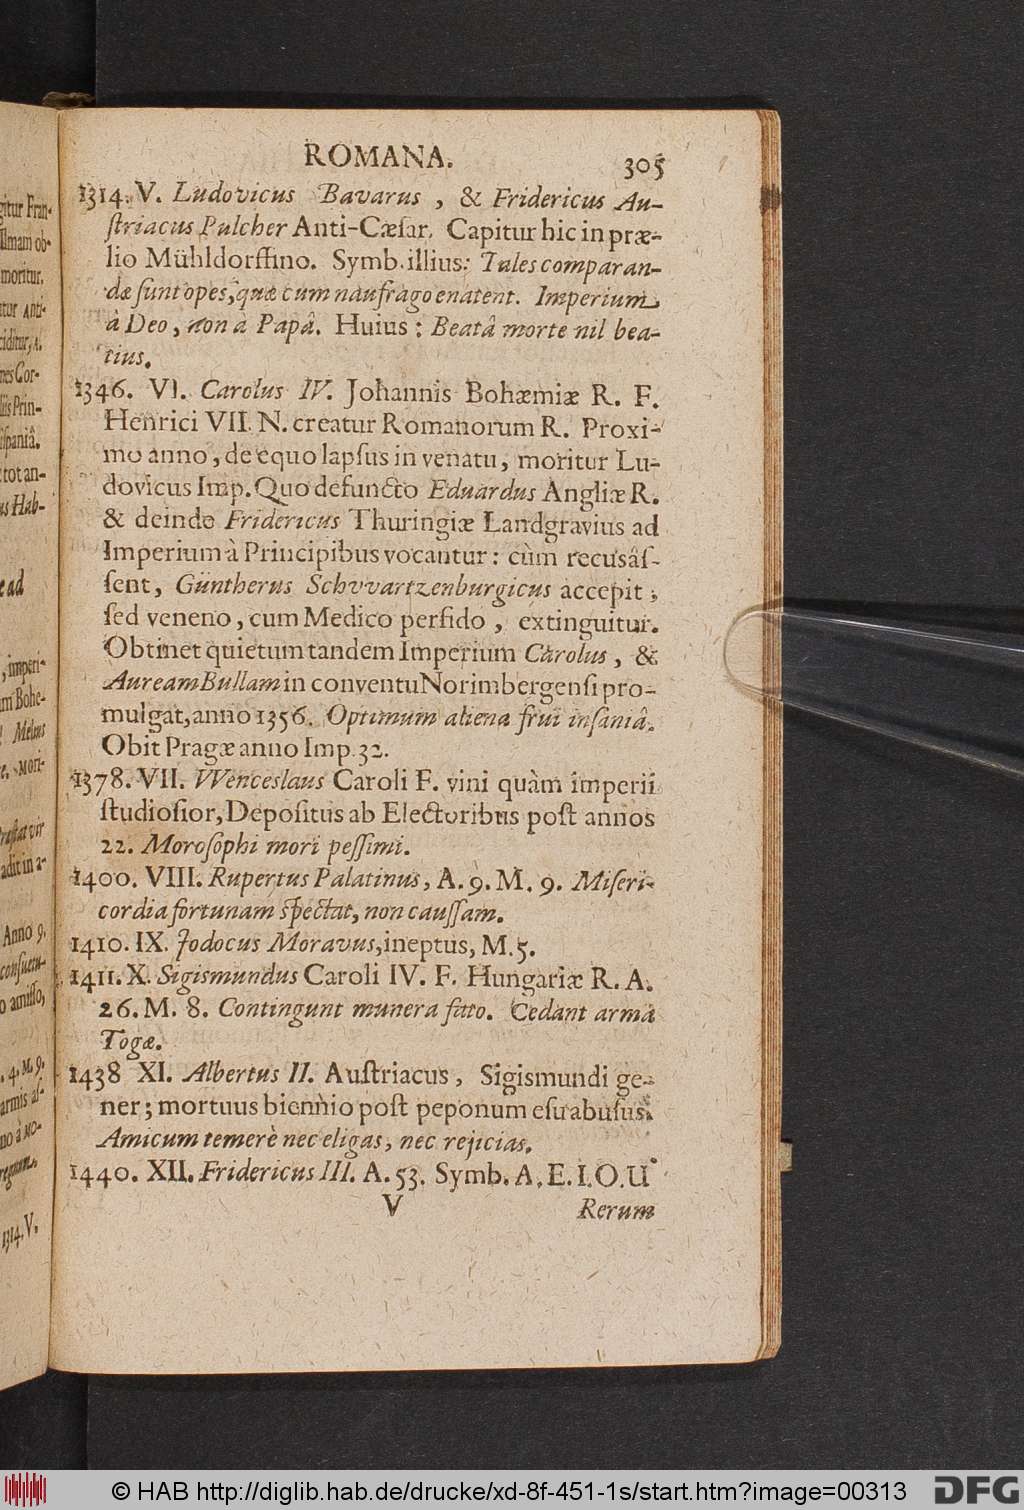 ROMANA. 305
1314. V. Ludovicus Bavarus, & Fridericus Au-
striacus Pulcher Anti-Cæsar. Capitur hic in præ-
lio Mühldorffino. Symb. illius: Tales comparan-
dæ sunt opes, quæ cum naufrago enatent. Imperium
à Deo, non à Papâ. Huius: Beatâ morte nil bea-
tius.
1346. VI. Carolus IV. Johannis Bohæmiæ R. F.
Henrici VII. N. creatur Romanorum R. Proxi-
mo anno, de equo lapsus in venatu, moritur Lu-
dovicus Imp. Quo defuncto Eduardus Angliæ R.
& deinde Fridericus Thuringiæ Landgravius ad
Imperium à Principibus vocantur: cùm recusâs-
sent, Güntherus Schvvartzenburgicus accepit;
sed veneno, cum Medico perfido, extinguitur.
Obtinet quietum tandem Imperium Carolus, &
Auream Bullam in conventu Norimbergensi pro-
mulgat, anno 1356. Optimum aliena frui insaniâ.
Obit Pragæ anno Imp. 32.
1378. VII. VVenceslaus Caroli F. vini quàm imperii
studiosior, Depositus ab Electoribus post annos
22. Morosophi mori pessimi.
1400. VIII. Rupertus Palatinus, A. 9. M. 9. Miseri-
cordia fortunam spectat, non caussam.
1410. IX. Jodocus Moravus, ineptus, M. 5.
1411. X. Sigismundus Caroli IV. F. Hungariæ R. A.
26. M. 8. Contingunt munera fato. Cedant arma
Togæ.
1438 XI. Albertus II. Austriacus, Sigismundi ge-
ner; mortuus biennio post peponum esu abusus.
Amicum temerè nec eligas, nec rejicias.
1440. XII. Fridericus III. A. 53. Symb. A. E. I. O. U
V Rerum
gitur Fran-
moritur.
Anti-
nes Cor-
iis Prin-
ispaniâ.
tot an-
us Hab-
e ad
, imperi-
um Bohe-
Melius
e. Mori-
Præstat vir
adit in a-
Anno 9.
consuetu-
o amisso,
. 4. M. 9.
armis as-
no à Mo-
regnum.
1314. V.
© HAB http://diglib.hab.de/drucke/xd-8f-451-1s/start.htm?image=00313
DFG